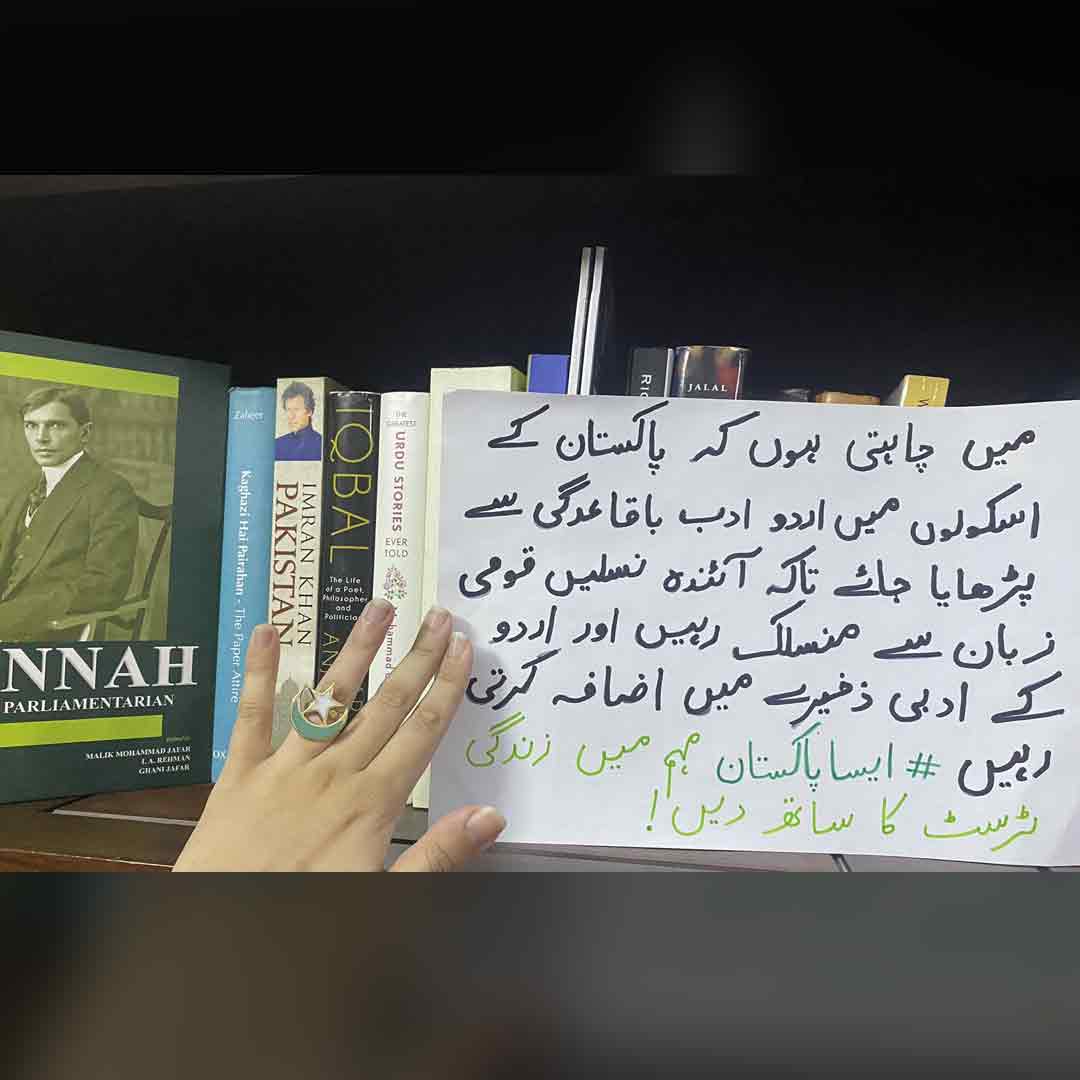 NNAH
PARLIAMENTARIAN
MALIK MOHAMMAD JAFAR
I. A. REHMAN
GHANI JAFAR
Zaheer
Kaghazi Hai Pairahan - The Paper Attire
OX
IMRAN KHAN
PAKISTAN
IQBAL
The Life
of a Poet,
Philosopher
and
Politician
THE
GREATEST
URDU STORIES
EVER
TOLD
JALAL
میں چاہتی ہوں کہ پاکستان کے
اسکولوں میں اردو ادب باقاعدگی سے
پڑھایا جائے تاکہ آئندہ نسلیں قومی
زبان سے منسلک رہیں اور اردو
کے ادبی ذخیرے میں اضافہ کرتی
رہیں # ایسا پاکستان مہم میں زندگی
ٹرسٹ کا ساتھ دیں!